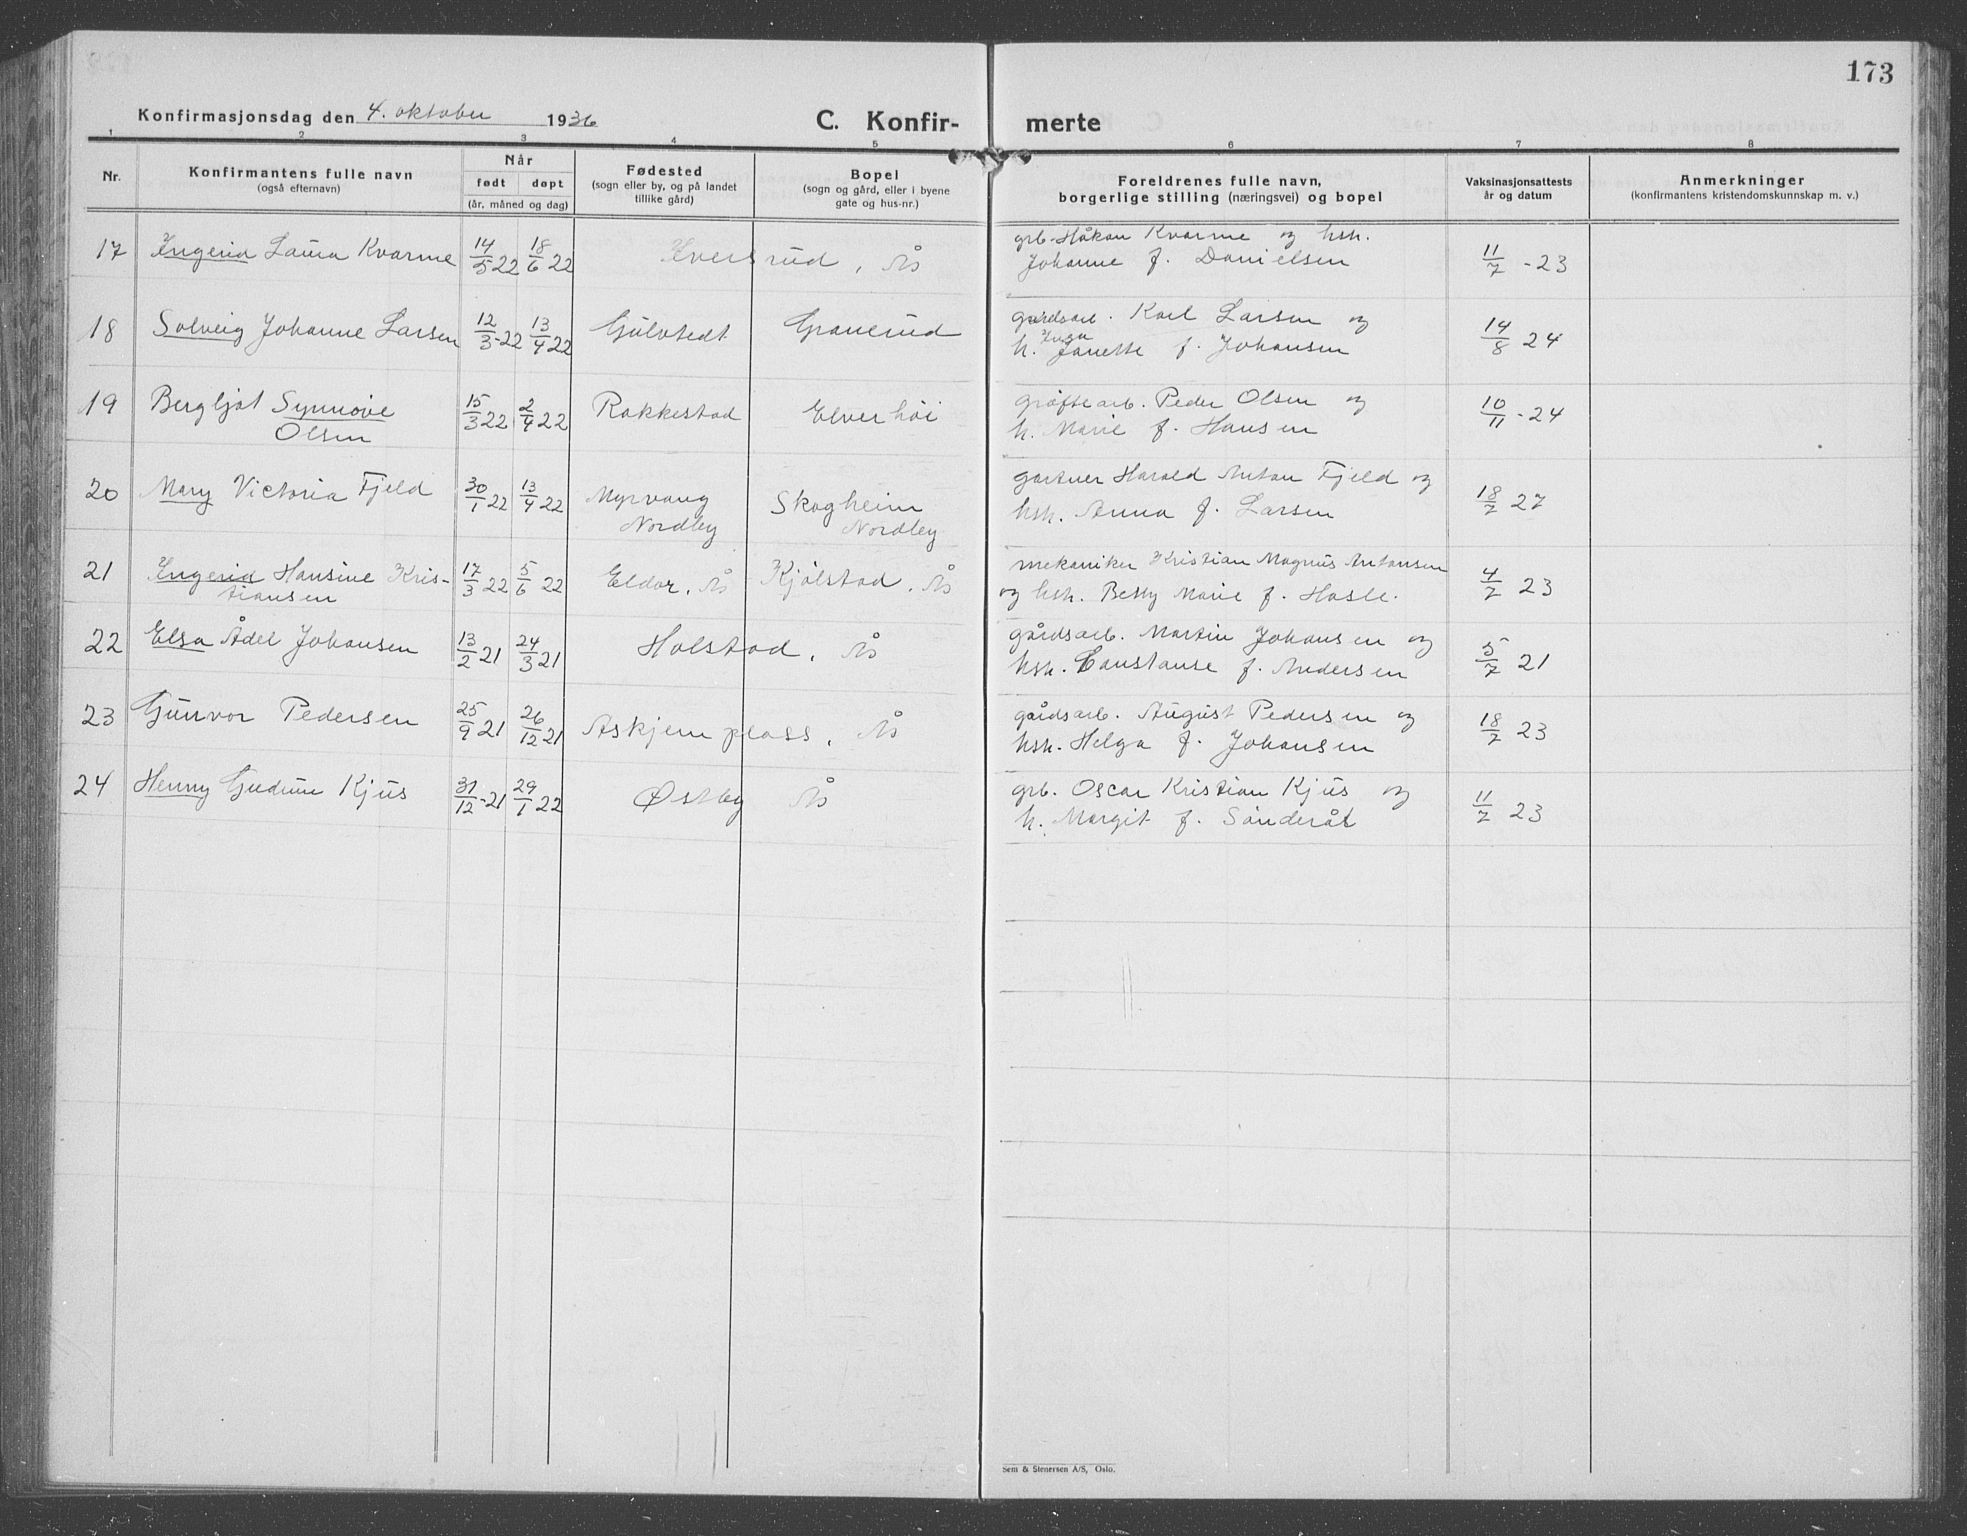 173
Konfirmasjonsdag den 4. oktober 1936
C. Konfir- merte
1 2 3 4 5 6 7 8
Nr.
Konfirmantens fulle navn
(også efternavn)
Når
født døpt
(år, måned og dag)
Fødested
(sogn eller by, og på landet
tillike gård)
Bopel
(sogn og gård, eller i byene
gate og hus-nr.)
Foreldrenes fulle navn,
borgerlige stilling (næringsvei) og bopel
Vaksinasjonsattests
år og datum
Anmerkninger
(konfirmantens kristendomskunnskap m. v.)
17 Ingerid Laura Kvarme 14/5 22 18/6 22 Iversrud, Ås grb. Håkon Kvarme og hsh. 11/7 - 23
Johanne f. Danielsen
18 Solveig Johanne Larsen 12/3 - 22 13/4 22 Gulvtedt Granerud gardsarb. Karl Larsen og 14/8 24
h. Inga Janette f. Johansen
19 Bergljot Synnøve 15/3 22 2/4 22 Rakkestad Elverhöi grøftearb. Peder Olsen og 10/11 - 24
Olsen h. Marie f. Hansen
20 Mary Victoria Fjeld 30/1 22 13/4 22 Myrvang Skogheim gartner Harald Anton Fjeld og 18/7 27
Nordby Nordby hsh. Anna f. Larsen
21 Ingerid Hansine Kris- 17/3 22 5/6 22 Eldor, Ås Kjølstad, Ås mekaniker Kristian Magnus Antonsen 4/7 23
tiansen og hsh. Betsy Marie f. Hasle.
22 Elsa Ådel Johansen 13/2 21 24/3 21 Holstad, Ås gårdsarb. Martin Johansen og 5/7 21
hsh. Constanse f. Andersen
23 Gunvor Pedersen 25/9 21 26/12 21 Askjem plass, Ås gårdsarb. August Pedersen og 18/7 23
hsh. Helga f. Johansen
24 Henny Gudrun Kjus 31/12 - 21 29/1 22 Østby Ås grb. Oscar Kristian Kjus og 11/7 23
h. Margit f. Sønderål
Sem & Stenersen A/S, Oslo.